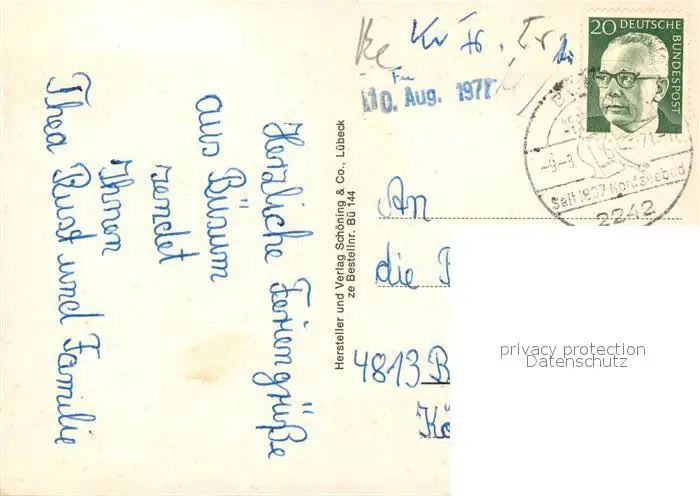 Herzliche Feriengrüße
aus Büsum
sendet
Ihnen
Thea Rust und Familie
Hersteller und Verlag Schöning & Co., Lübeck
ze Bestellnr. Bü 144
Ke Kr
10. Aug. 1971
20 DEUTSCHE
BUNDESPOST
-9.-8.
Seit 1837 Nordseebad
2242
An
die
4813 B
Kö
privacy protection
Datenschutz